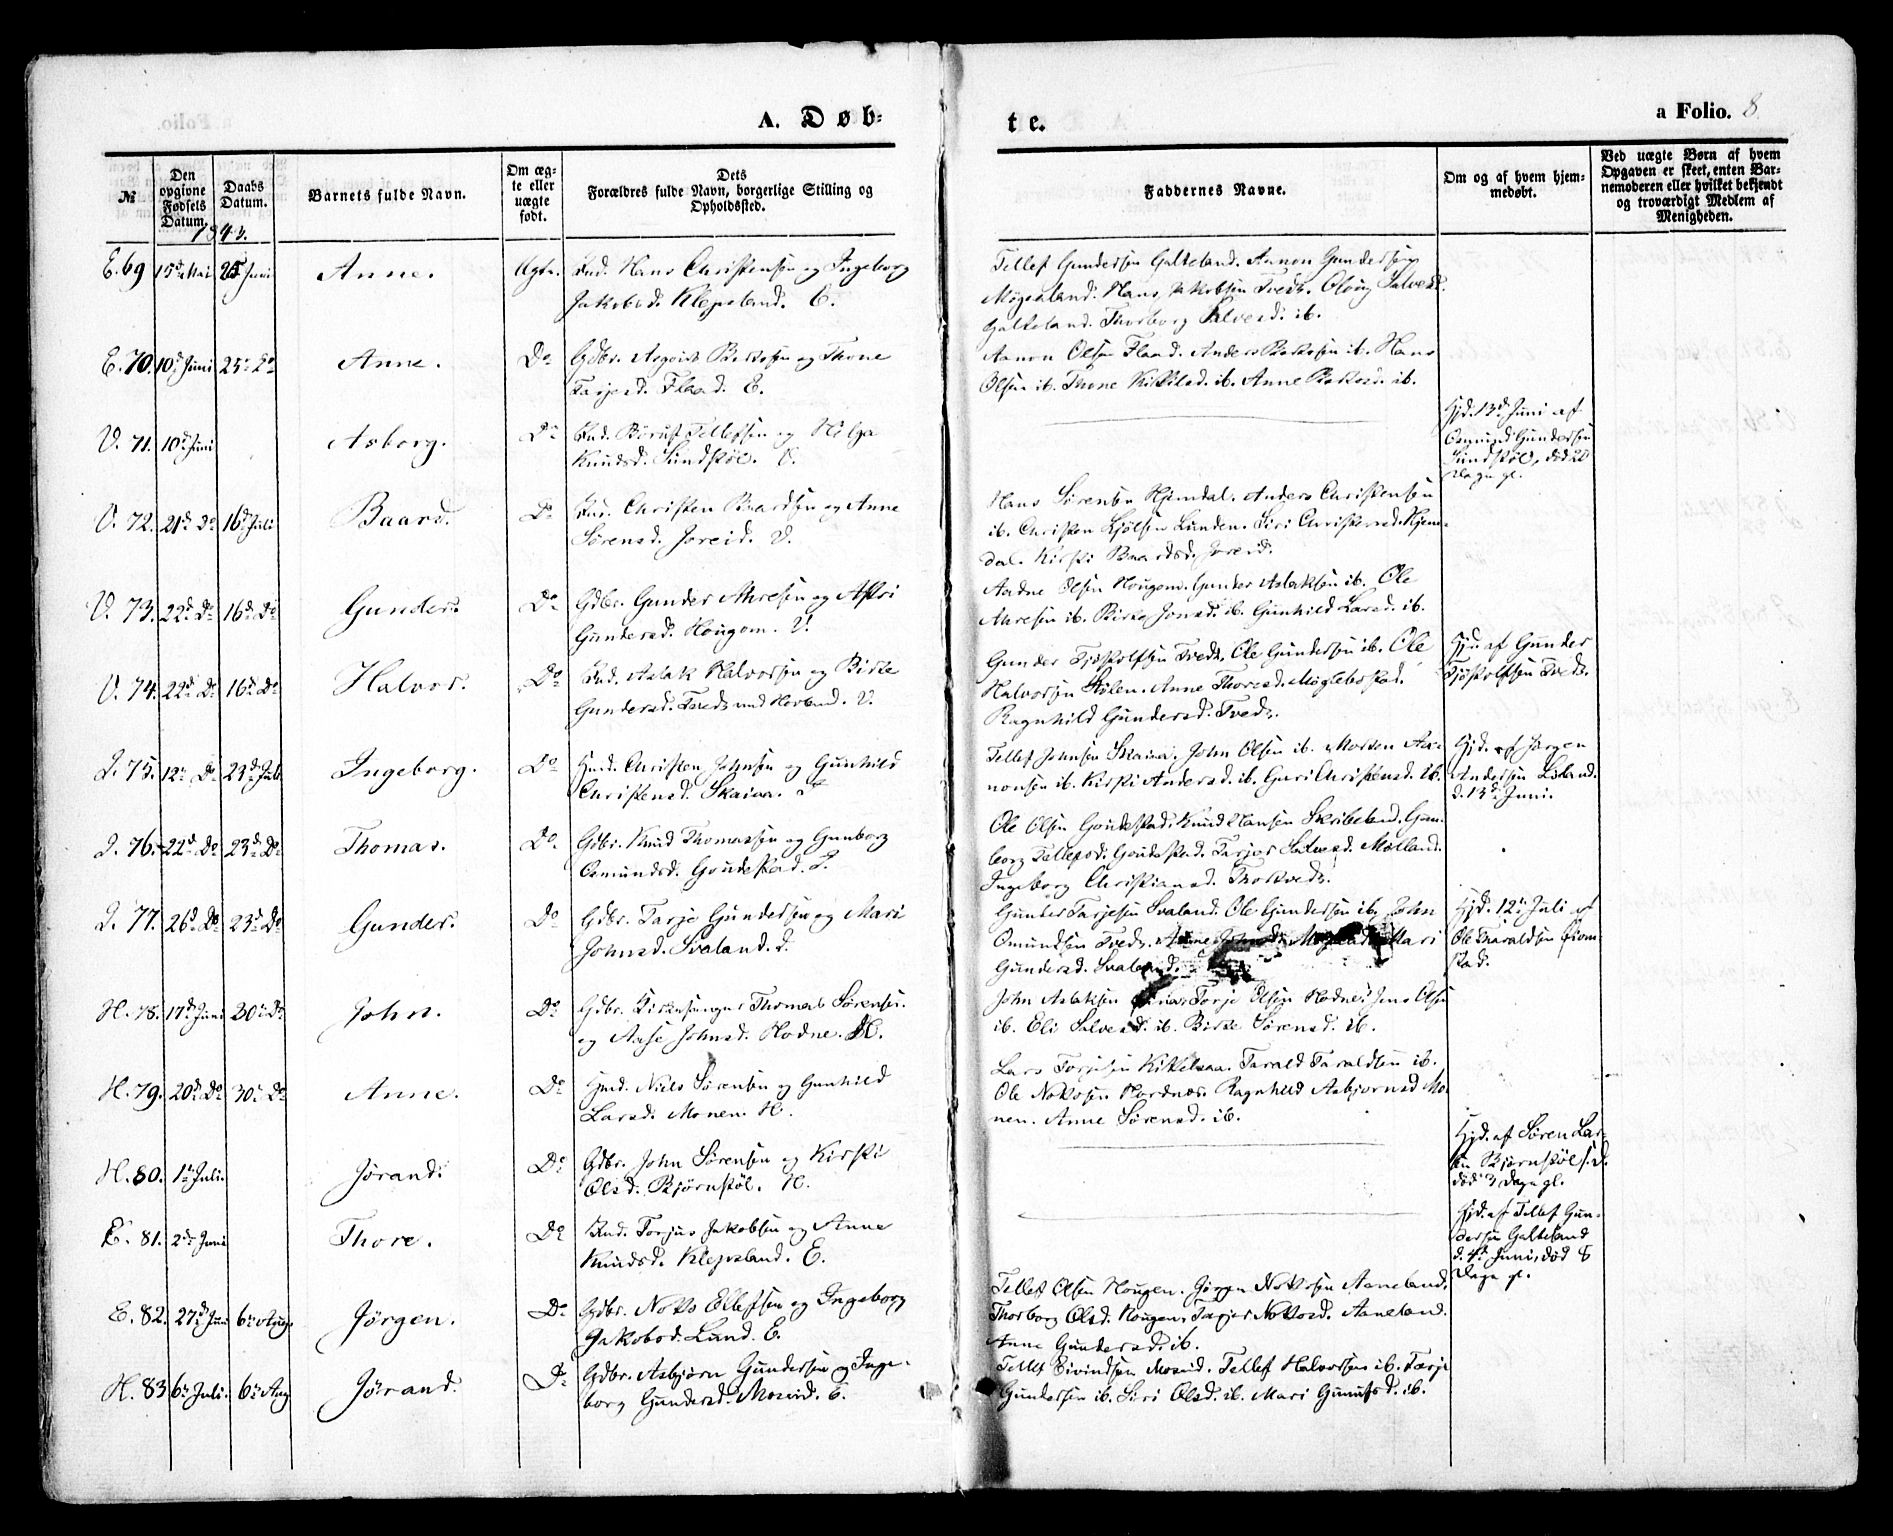 A. Døb-
te.
a Folio. 8
№
Den opgivne Fødsels Datum.
Daabs Datum.
Barnets fulde Navn.
Om ægte eller uægte født.
Dets Forældres fulde Navn, borgerlige Stilling og Opholdssted.
Faddernes Navne.
Om og af hvem hjemmedøbt.
Ved uægte Børn af hvem Opgaven er skeet, enten Barnemoderen eller hvilket bekjendt og troværdigt Medlem af Menigheden.
E. 69 15d Mai 25 Juni Anne. Ægte. Hans Christensen og Ingeborg
Jakobsd. Klepsland. E.
Tellef Gundersen Galteland. Aanon Gundersen
Hans Jakobsen Tveds. Oloug Salvesd.
Galteland. Thorborg Salvesd. ib.
E. 70. 10d Juni 25 Do Anne. Do Gdbr. Asgout og Thone
Tarjesd. Flaad. E.
Aanon Olsen Flaad. Anders ib. Hans
Olsen ib. Thone ib. Anne ib.
V. 71. 10d Juni Asborg. Do Tellefsen og Helga
Knudsd. Sundstøl. V.
Hjd. 13d Juni af
Osmund Gundersen
Sundstøl, død 20
Dage gl.
V. 72. 21d Do 16d Juli Baard. Do Christen Baardsen og Anne
Sørensd. Joreid. V.
Hans Sørensen Hjemdal. Anders Christensen
ib. Christen Lunden. Siri
dal. Kirsti Baardsd. Joreid.
V. 73. 22d Do 16d Do Gunder. Do Gdbr. Gunder og
Gundersd. Hougom. V.
Aadne Olsen Hougom. Gunder Aslaksen ib. Ole
ib. Birte Jonsd. ib. Gunhild Larsd. ib.
V. 74. 22d Do 16d Do Halvor. Do Aslak Halvorsen og Birte
Gundersd. Tveds V.
Gunder Tjøstolfsen Tveds. Ole Gundersen ib. Ole
Halvorsen Stølen. Anne Thoresd. Møglebostad.
Ragnhild Gundersd. Tveds.
Hjd. af Gunder
Tjøstolfsen Tveds.
I. 75. 12te Do 23d Juli Ingeborg. Do Christen Johnsen og Gunhild
Christensd. Skaiaa. I
Tellef Johnsen Skaiaa. John Olsen ib. Morten Aa-
nonsen ib. Kirsti Andersd. ib. Guri Christensd. ib.
Hjd. af Jørgen
Andersen
d. 13d Juni.
I. 76. 22d Do 23d Do Thomas. Do Gdbr. Knud Thomassen og Gunborg
Osmundsd. Goudestad. I.
Ole Olsen Goudestad. Knud Hansen Skribeland. Gun-
borg Tellefsd. Goudestad. Tarjer Salvesd. Mølland.
Ingeborg Christiansd. Thorveds.
I. 77. 26d Do 23d Do Gunder. Do Gdbr. Tarje Gundersen og Mari
Johnsd. Svaland. I.
Gunder Tarjesen Svaland. Ole Gundersen ib. John
Omundsen Tveds. Anne Johnsd. Mari
Gundersd. Svaland.
Hjd. 12te Juli af
Ole Tharaldsen
stad.
H. 78. 17d Juni 30 Do John. Do Gdbr. Kirkesanger Thomas Sørensen
og Aase Johnsd. Hodne. H.
John Aslaksen Torje Olsen Hodne. Jens Olsen
ib. Eli Salvesd. ib. Birte Sørensd. ib.
H. 79. 20d Do 30 Do Anne. Do Niels Sørensen og Gunhild
Larsd. Monen. H.
Lars Torjesen Kittelsaa. Tarald Taraldsen ib.
Ole Hordnes. Ragnhild Asbjørnsd Mo-
nen. Anne Sørensd. ib.
H. 80. 1te Juli. Jørand. Do Gdbr. John Sørensen og Kirsti
Olsd. Bjørnstøl. H.
Hjd. af Søren Lar-
sen Bjørnstøl s.d.
død 3 Dage gl.
E. 81. 2d Juni Thore. Do Torjus Jakobsen og Anne
Knudsd. Klepsland. E.
Hjd. af Tellef Gun-
dersen Galteland
d. 4d Juni, død 8
Dage gl.
E. 82. 27d Juni 6te Aug. Jørgen. Do Gdbr. Ellefsen og Ingeborg
Jakobsd. Lund. E.
Tellef Olsen Hougen. Jørgen Aaneland.
Thorborg Olsd. Hougen. Aaneland.
Anne Gundersd. ib.
H. 83 6te Juli. 6te Aug Jørand. Do Gdbr. Asbjørn Gundersen og Inge-
borg Gundersd. Moseid. E.
Tellef Eivindsen Moseid. Tellef Halvorsen ib. Tarje
Gundersen ib. Siri Olsd. ib. Mari ib.